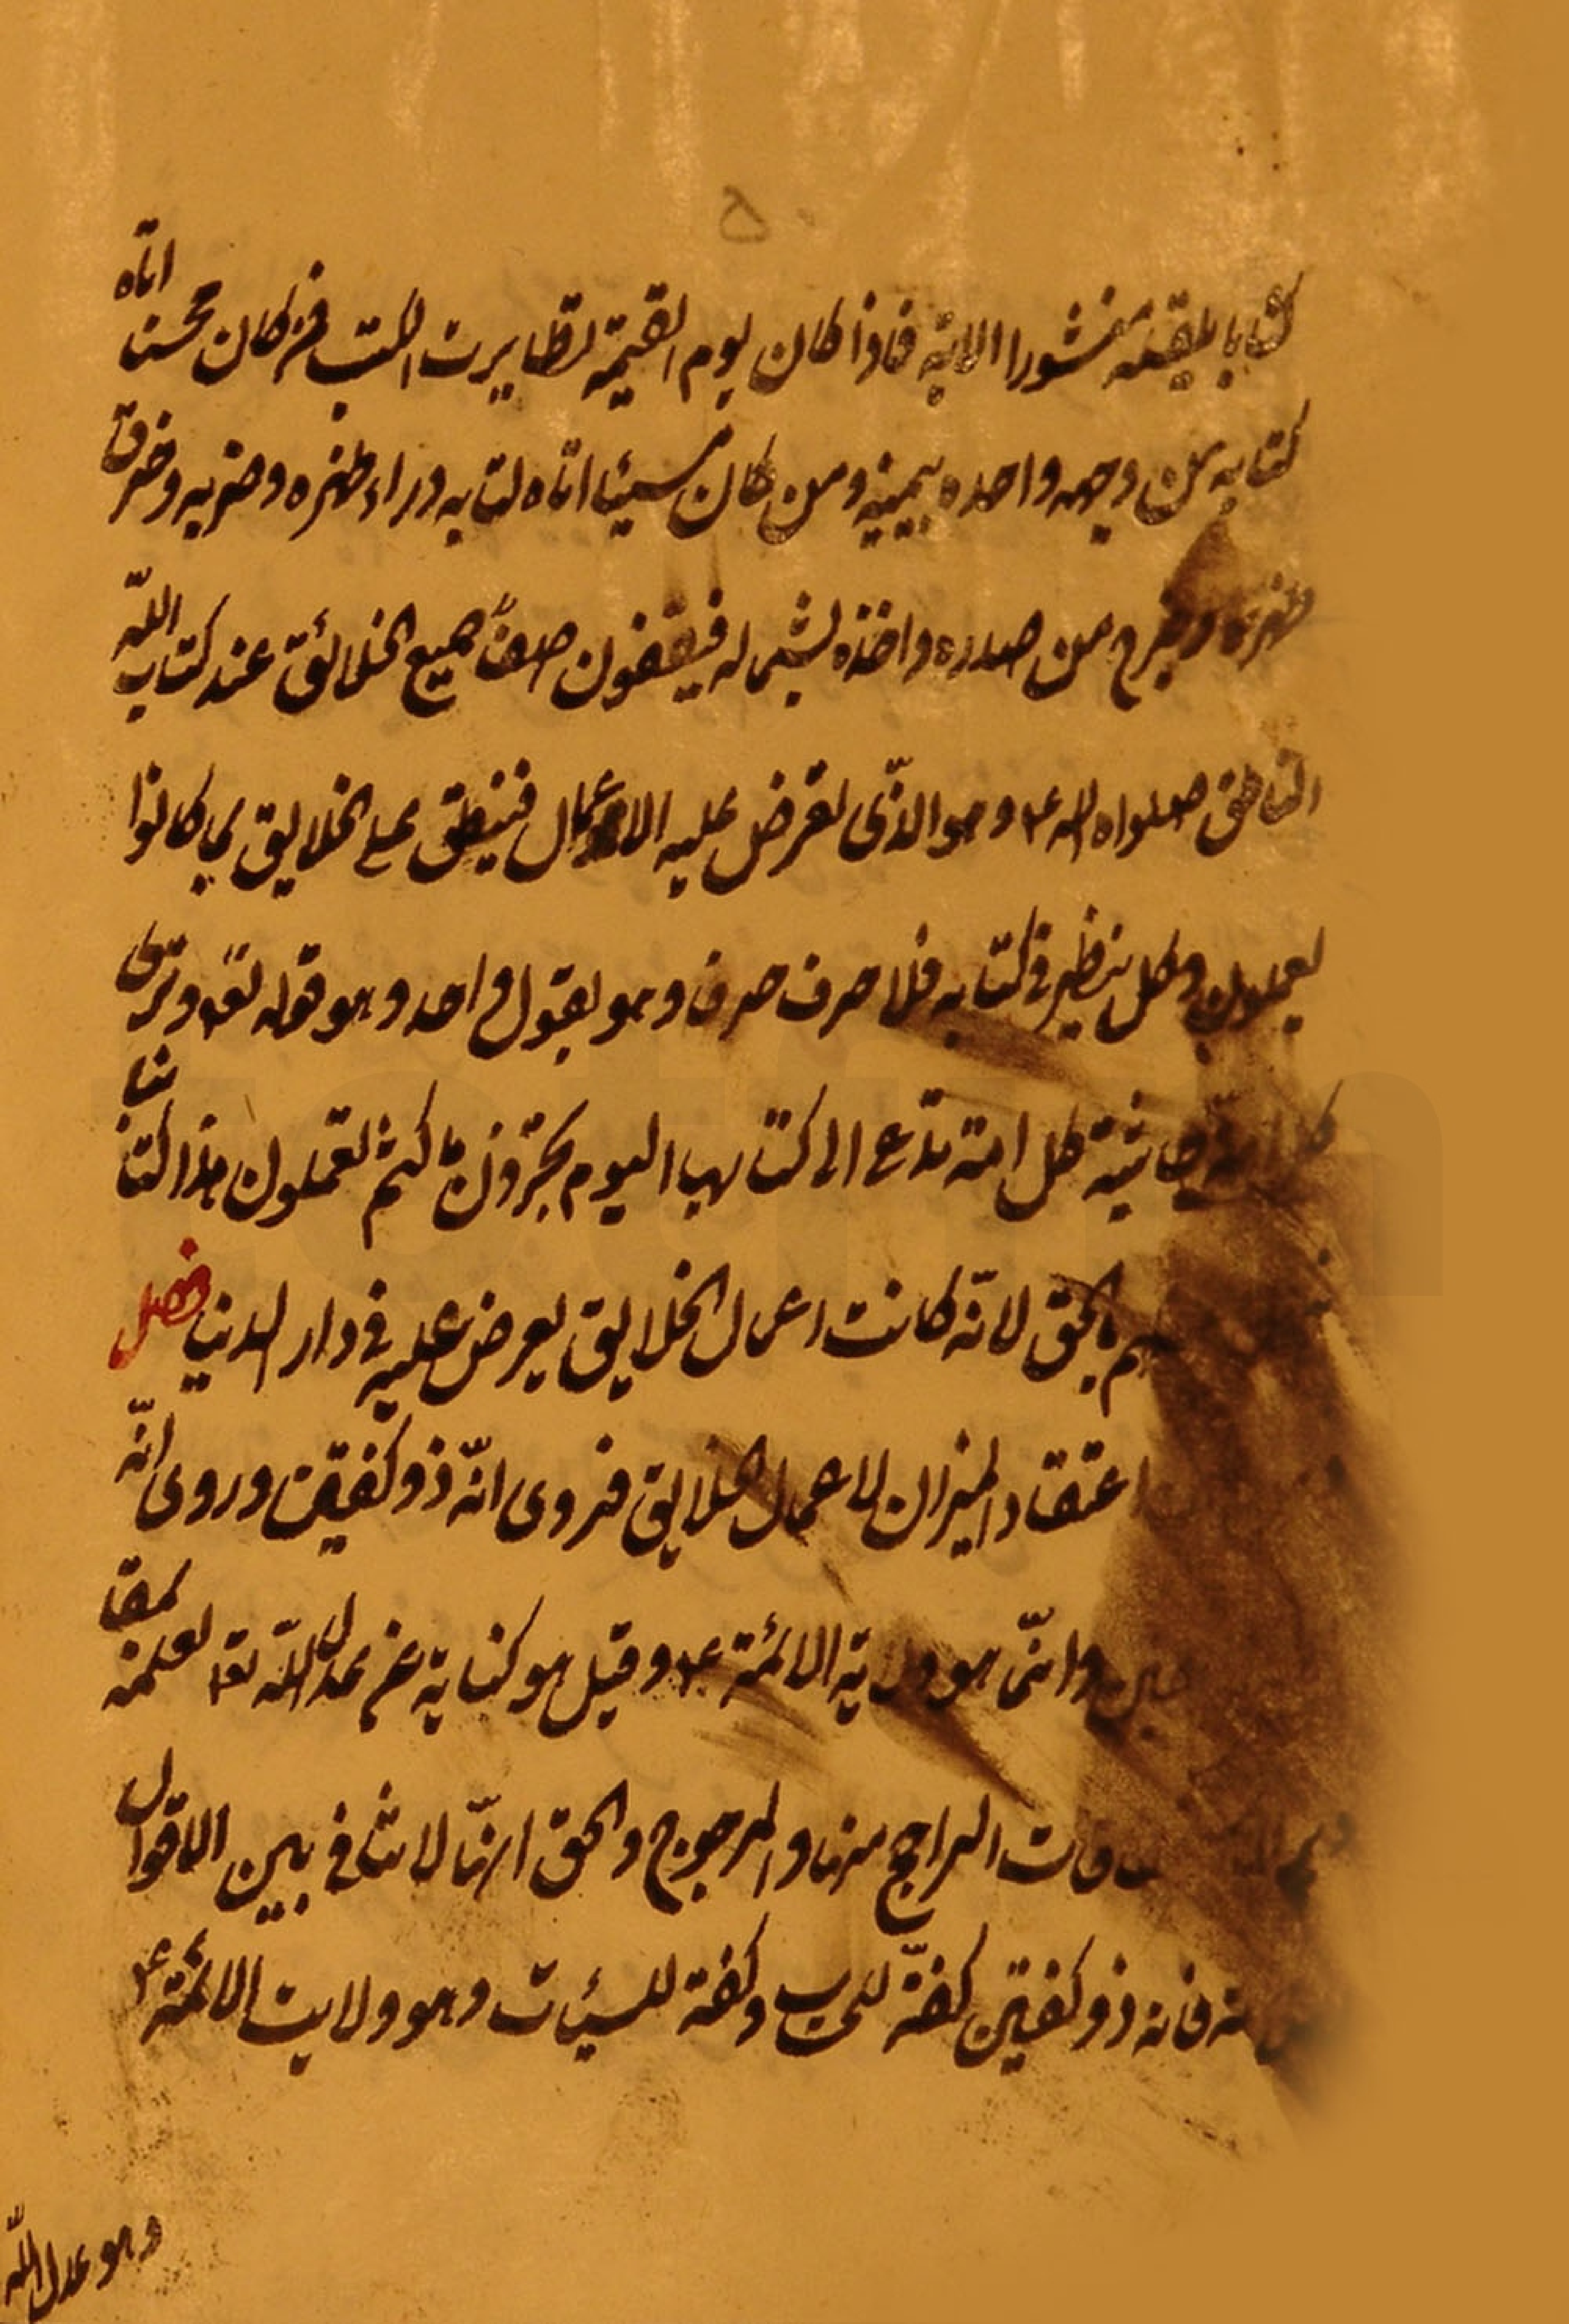 ۵۰
كتابا يلقيه منشورا الاية فاذا كان يوم القيمة تطايرت الكتب فمن كان محسنا اتاه
كتابه من وجهه واخذه بيمينه ومن كان مسيئا اتاه كتابه وراء ظهره وضربه وخرق
ظهره وخرج من صدره واخذه بشماله فيقفون صفا جميع الخلائق عند كتاب الله
الناطق صلواه الله ع وهو الذى تعرض عليه الاعمال فينطق على الخلايق بما كانوا
يعملون وكل ينظر فى كتابه فلا حرف حرف وهو يقول واحد وهو قوله تع وترى
كل امة جاثية كل امة تدعى الى كتابها اليوم تجزون ما كنتم تعملون هذا كتابنا
بالحق لانه كانت اعمال الخلايق يعرض عليه فى دار الدنيا فصل
اعتقاد الميزان لاعمال الخلايق فروى انه ذو كفتين وروى انه
وانما هو ولاية الائمة ع وقيل هو كناية عن عدل الله تع لعلمه بمقا
الراجح منها والمرجوح والحق انها لا تنافى بين الاقوال
فانه ذو كفتين كفة وكفة للسيئات وهو ولايت الائمة ع
وهو عدل الله